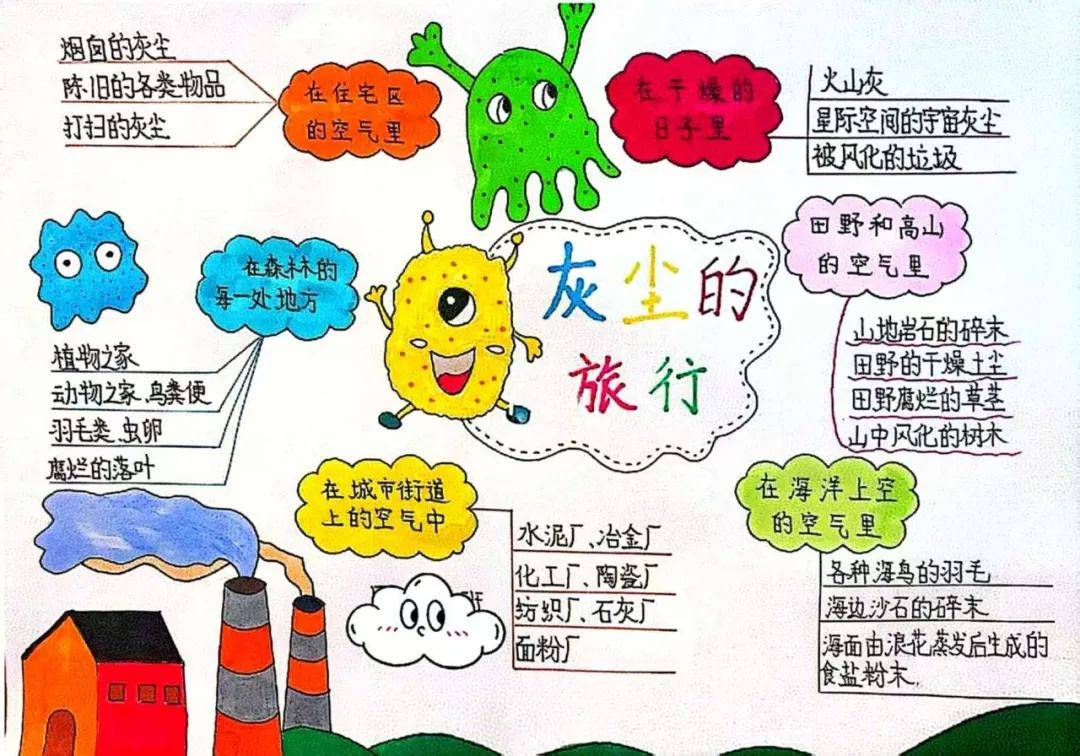 烟囱的灰尘
陈旧的各类物品
打扫的灰尘
在住宅区
的空气里
在干燥的
日子里
火山灰
星际空间的宇宙灰尘
被风化的垃圾
灰尘的
旅行
田野和高山
的空气里
山地岩石的碎末
田野的干燥土尘
田野腐烂的草茎
山中风化的树木
在森林的
每一处地方
植物之家
动物之家、鸟粪便
羽毛类、虫卵
腐烂的落叶
在城市街道
上的空气中
水泥厂、冶金厂
化工厂、陶瓷厂
纺织厂、石灰厂
面粉厂
在海洋上空
的空气里
各种海鸟的羽毛
海边沙石的碎末
海面由浪花蒸发后生成的
食盐粉末.